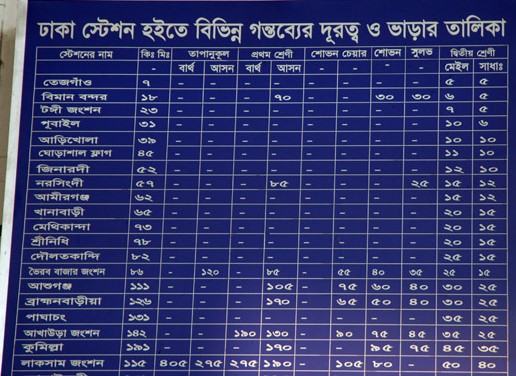 ঢাকা স্টেশন হইতে বিভিন্ন গন্তব্যের দূরত্ব ও ভাড়ার তালিকা
স্টেশনের নাম কিঃ মিঃ তাপানুকূল প্রথম শ্রেণী শোভন চেয়ার শোভন সুলভ দ্বিতীয় শ্রেণী
বার্থ আসন বার্থ আসন - - - মেইল সাধাঃ
তেজগাঁও ৭ - - - - - - - ৫ ৫
বিমান বন্দর ১৮ - - - ৭০ - ৩০ ৩০ ৬ ৫
টঙ্গী জংশন ২৩ - - - - - - - ৭ ৫
পূবাইল ৩১ - - - - - - - ১০ ৬
আড়িখোলা ৩৯ - - - - - - - ১০ ১০
ঘোড়াশাল ফ্লাগ ৪৫ - - - - - - - ১১ ১০
জিনারদী ৫২ - - - - - - - ১২ ১০
নরসিংদী ৫৭ - - - ৮৫ - - ২৫ ১৫ ১২
আমীরগঞ্জ ৬২ - - - - - - - ১৫ ১২
খানাবাড়ী ৬৫ - - - - - - - ২০ ১৫
মেথিকান্দা ৭৩ - - - - - - - ২০ ১৫
শ্রীনিধি ৭৮ - - - - - - - ২০ ১৫
দৌলতকান্দি ৮২ - - - - - - - ২৫ ১৫
ভৈরব বাজার জংশন ৮৬ - ১২০ - ৮৫ ৫৫ ৪০ ৩৫ ২৫ ১৫
আশুগঞ্জ ১১১ - - - ১০৫ - ৭৫ ৬০ ৪০ ৩০ ২৫
ব্রাহ্মনবাড়ীয়া ১২৬ - - - ১৭০ - ৬৫ ৫০ ৪০ ৩০ ২৫
পাঘাচং ১৩১ - - - - - - - ৩৫ ২৫
আখাউড়া জংশন ১৪২ - - ১৯০ ১৩০ - ৯০ ৭৫ ৪৫ ৩৫ ২৫
কুমিল্লা ১৯১ - - - ১৭০ - ৯৫ ৭৫ ৪৫ ৩৫
লাকসাম জংশন ১১৫ ৪০৫ ২৭৫ ২৭৫ ১৯০ - ১০৫ ৮০ - ৫০ ৪০